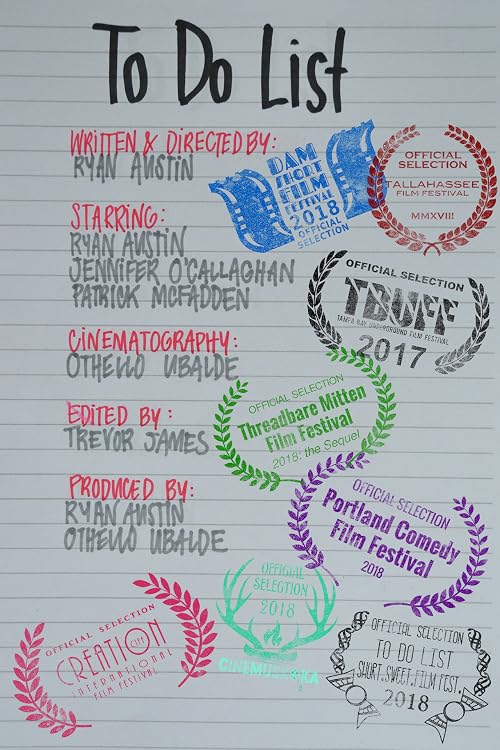 To Do List
WRITTEN & DIRECTED BY:
RYAN AUSTIN
STARRING:
RYAN AUSTIN
JENNIFER O'CALLAGHAN
PATRICK MCFADDEN
CINEMATOGRAPHY:
OTHELLO UBALDE
EDITED BY:
TREVOR JAMES
PRODUCED BY:
RYAN AUSTIN
OTHELLO UBALDE
DAM
SHORT
FILM
FESTIVAL
2018
OFFICIAL
SELECTION
OFFICIAL
SELECTION
TALLAHASSEE
FILM FESTIVAL
MMXVIII
OFFICIAL SELECTION
TBUFF
TAMPA BAY UNDERGROUND FILM FESTIVAL
2017
OFFICIAL SELECTION
Threadbare Mitten
Film Festival
2018: the Sequel
OFFICIAL SELECTION
Portland Comedy
Film Festival
2018
OFFICIAL SELECTION
CREATION
INTERNATIONAL
FILM FESTIVAL
OFFICIAL
SELECTION
2018
OFFICIAL SELECTION
TO DO LIST
SHORT.SWEET.FILM FEST.
2018